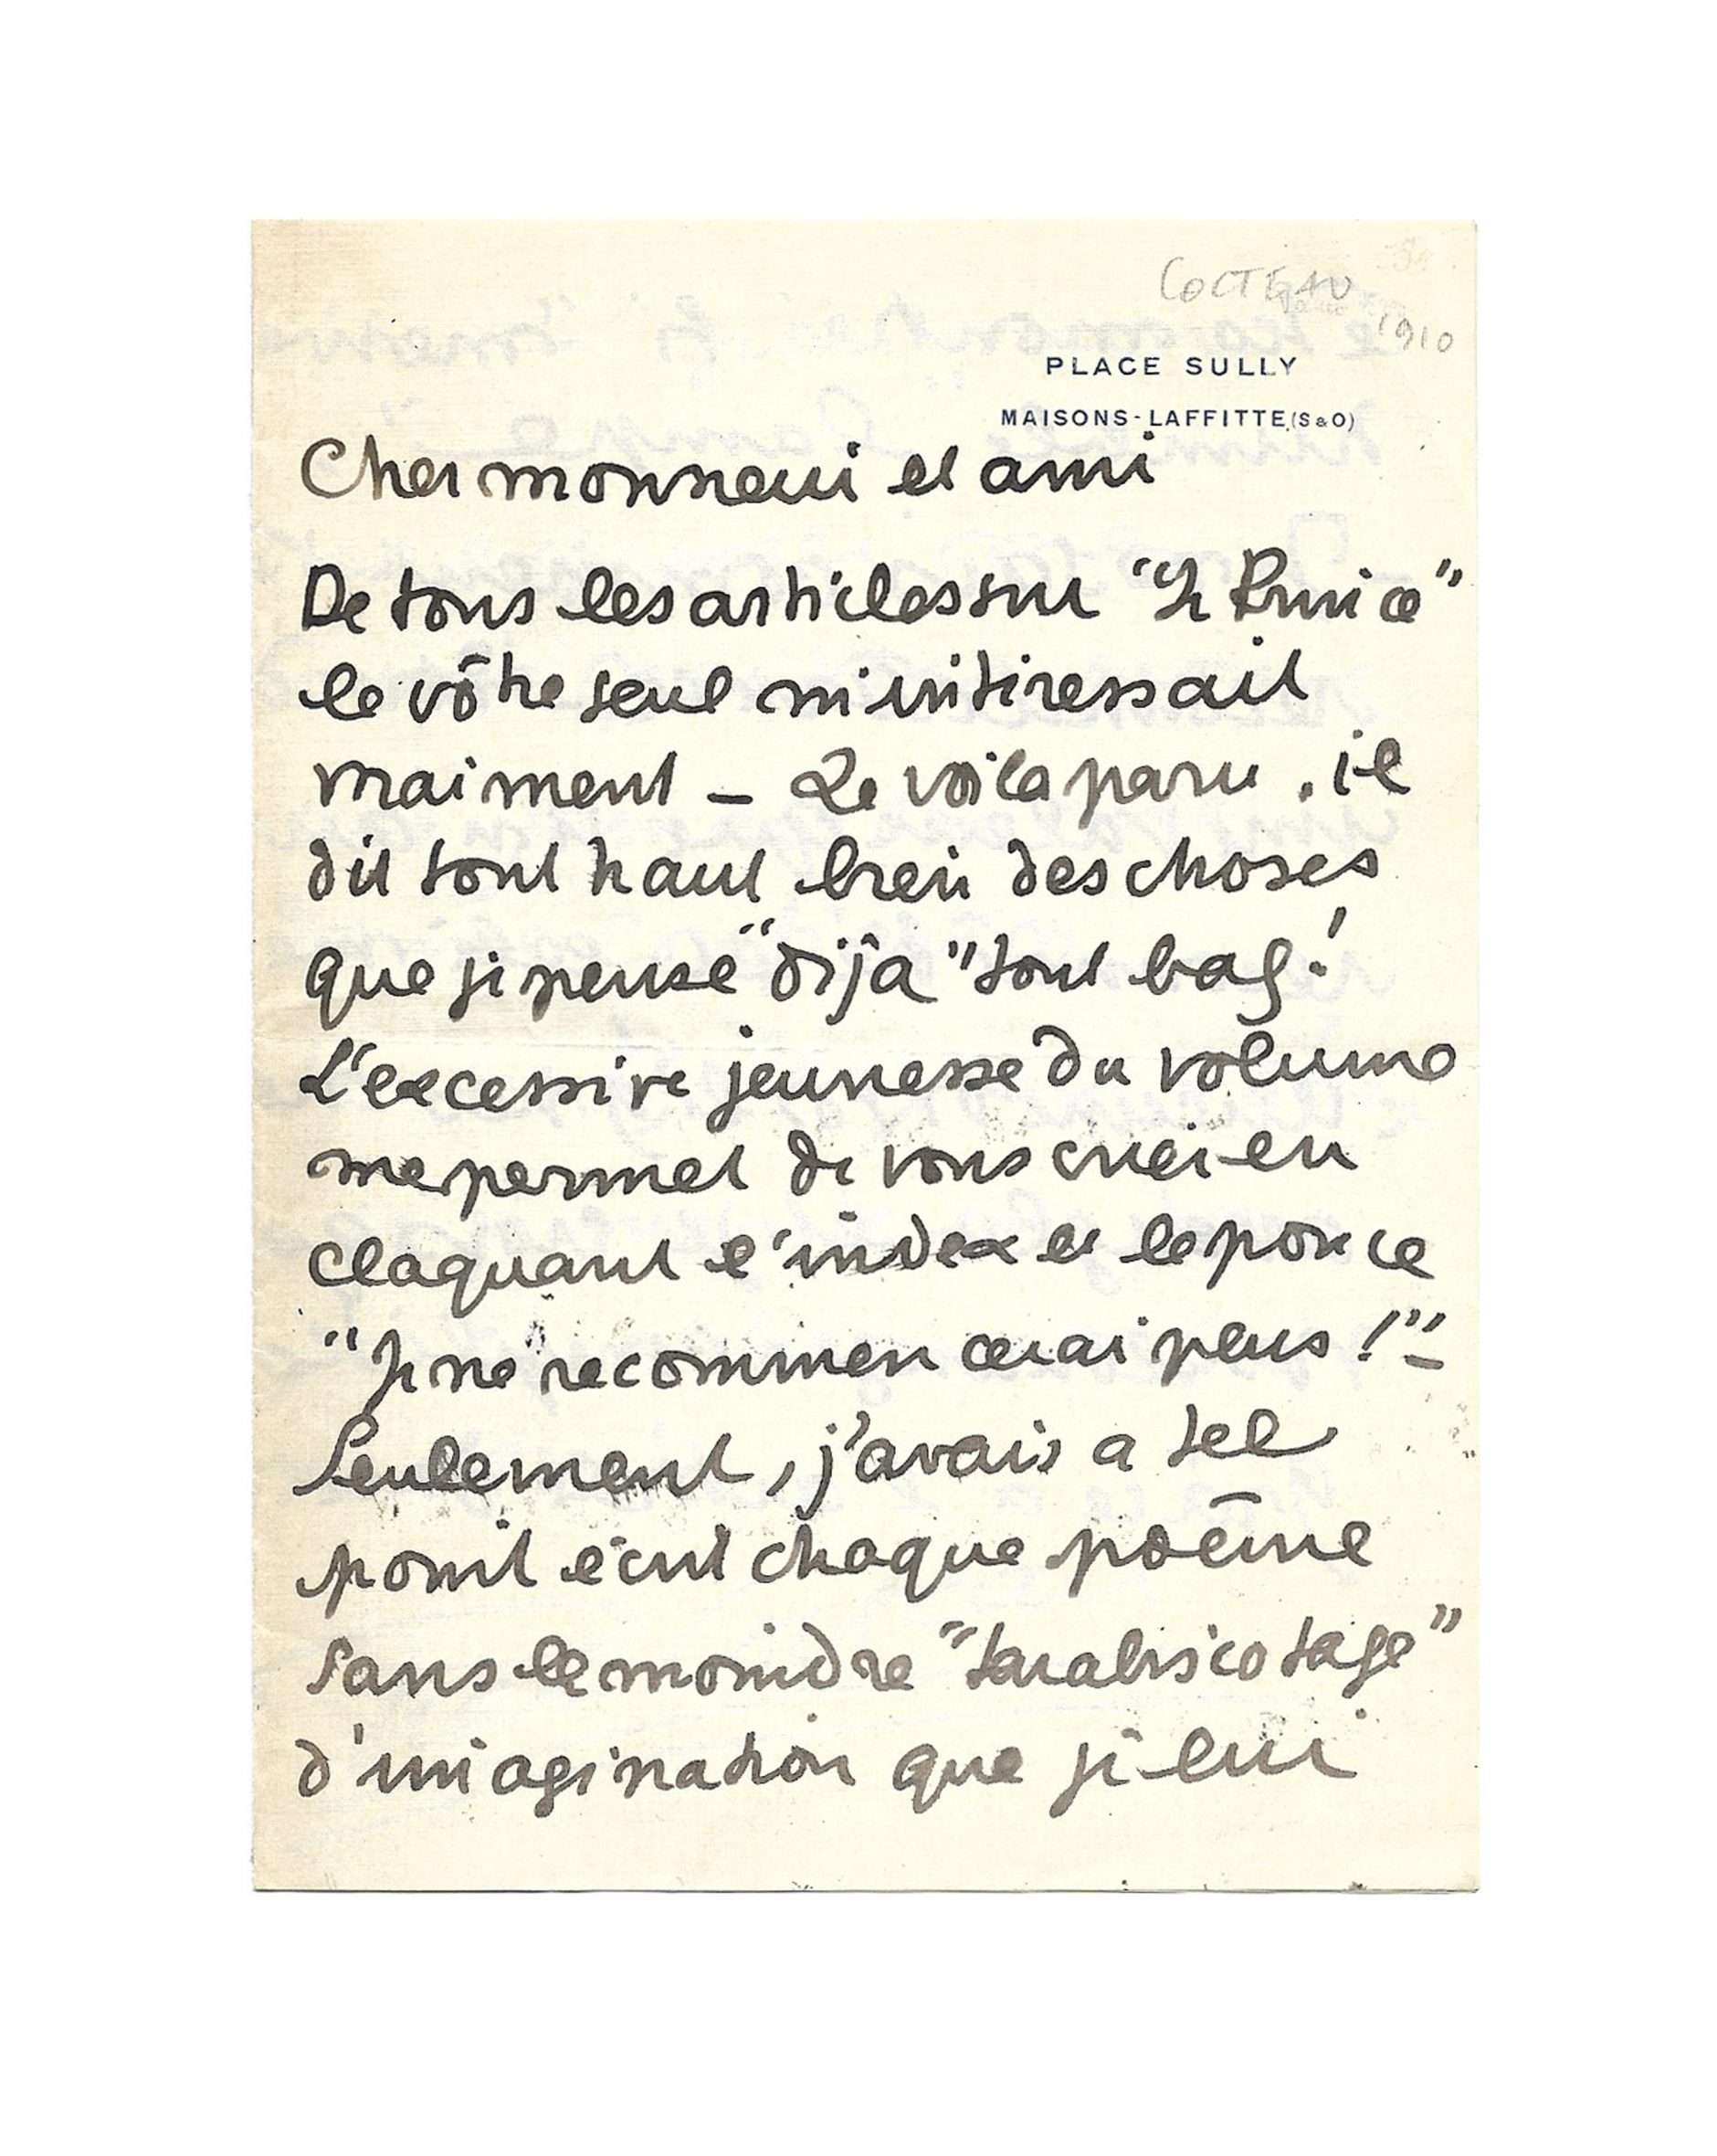 COCTEAU
1910
PLACE SULLY
MAISONS-LAFFITTE (S & O)
Cher monsieur et ami
De tous les articles sur "Le Prince"
le vôtre seul m'intéressait
vraiment – Le voila paru. il
dit tout haut bien des choses
que je pense "déjà" tout bas!
L'excessive jeunesse du volume
me permet de vous crier en
claquant l'index et le pouce
"Je ne recommencerai plus!" –
Seulement, j'avais a tel
point écrit chaque poême
sans le moindre "tarabiscotage"
d'imagination que je lui